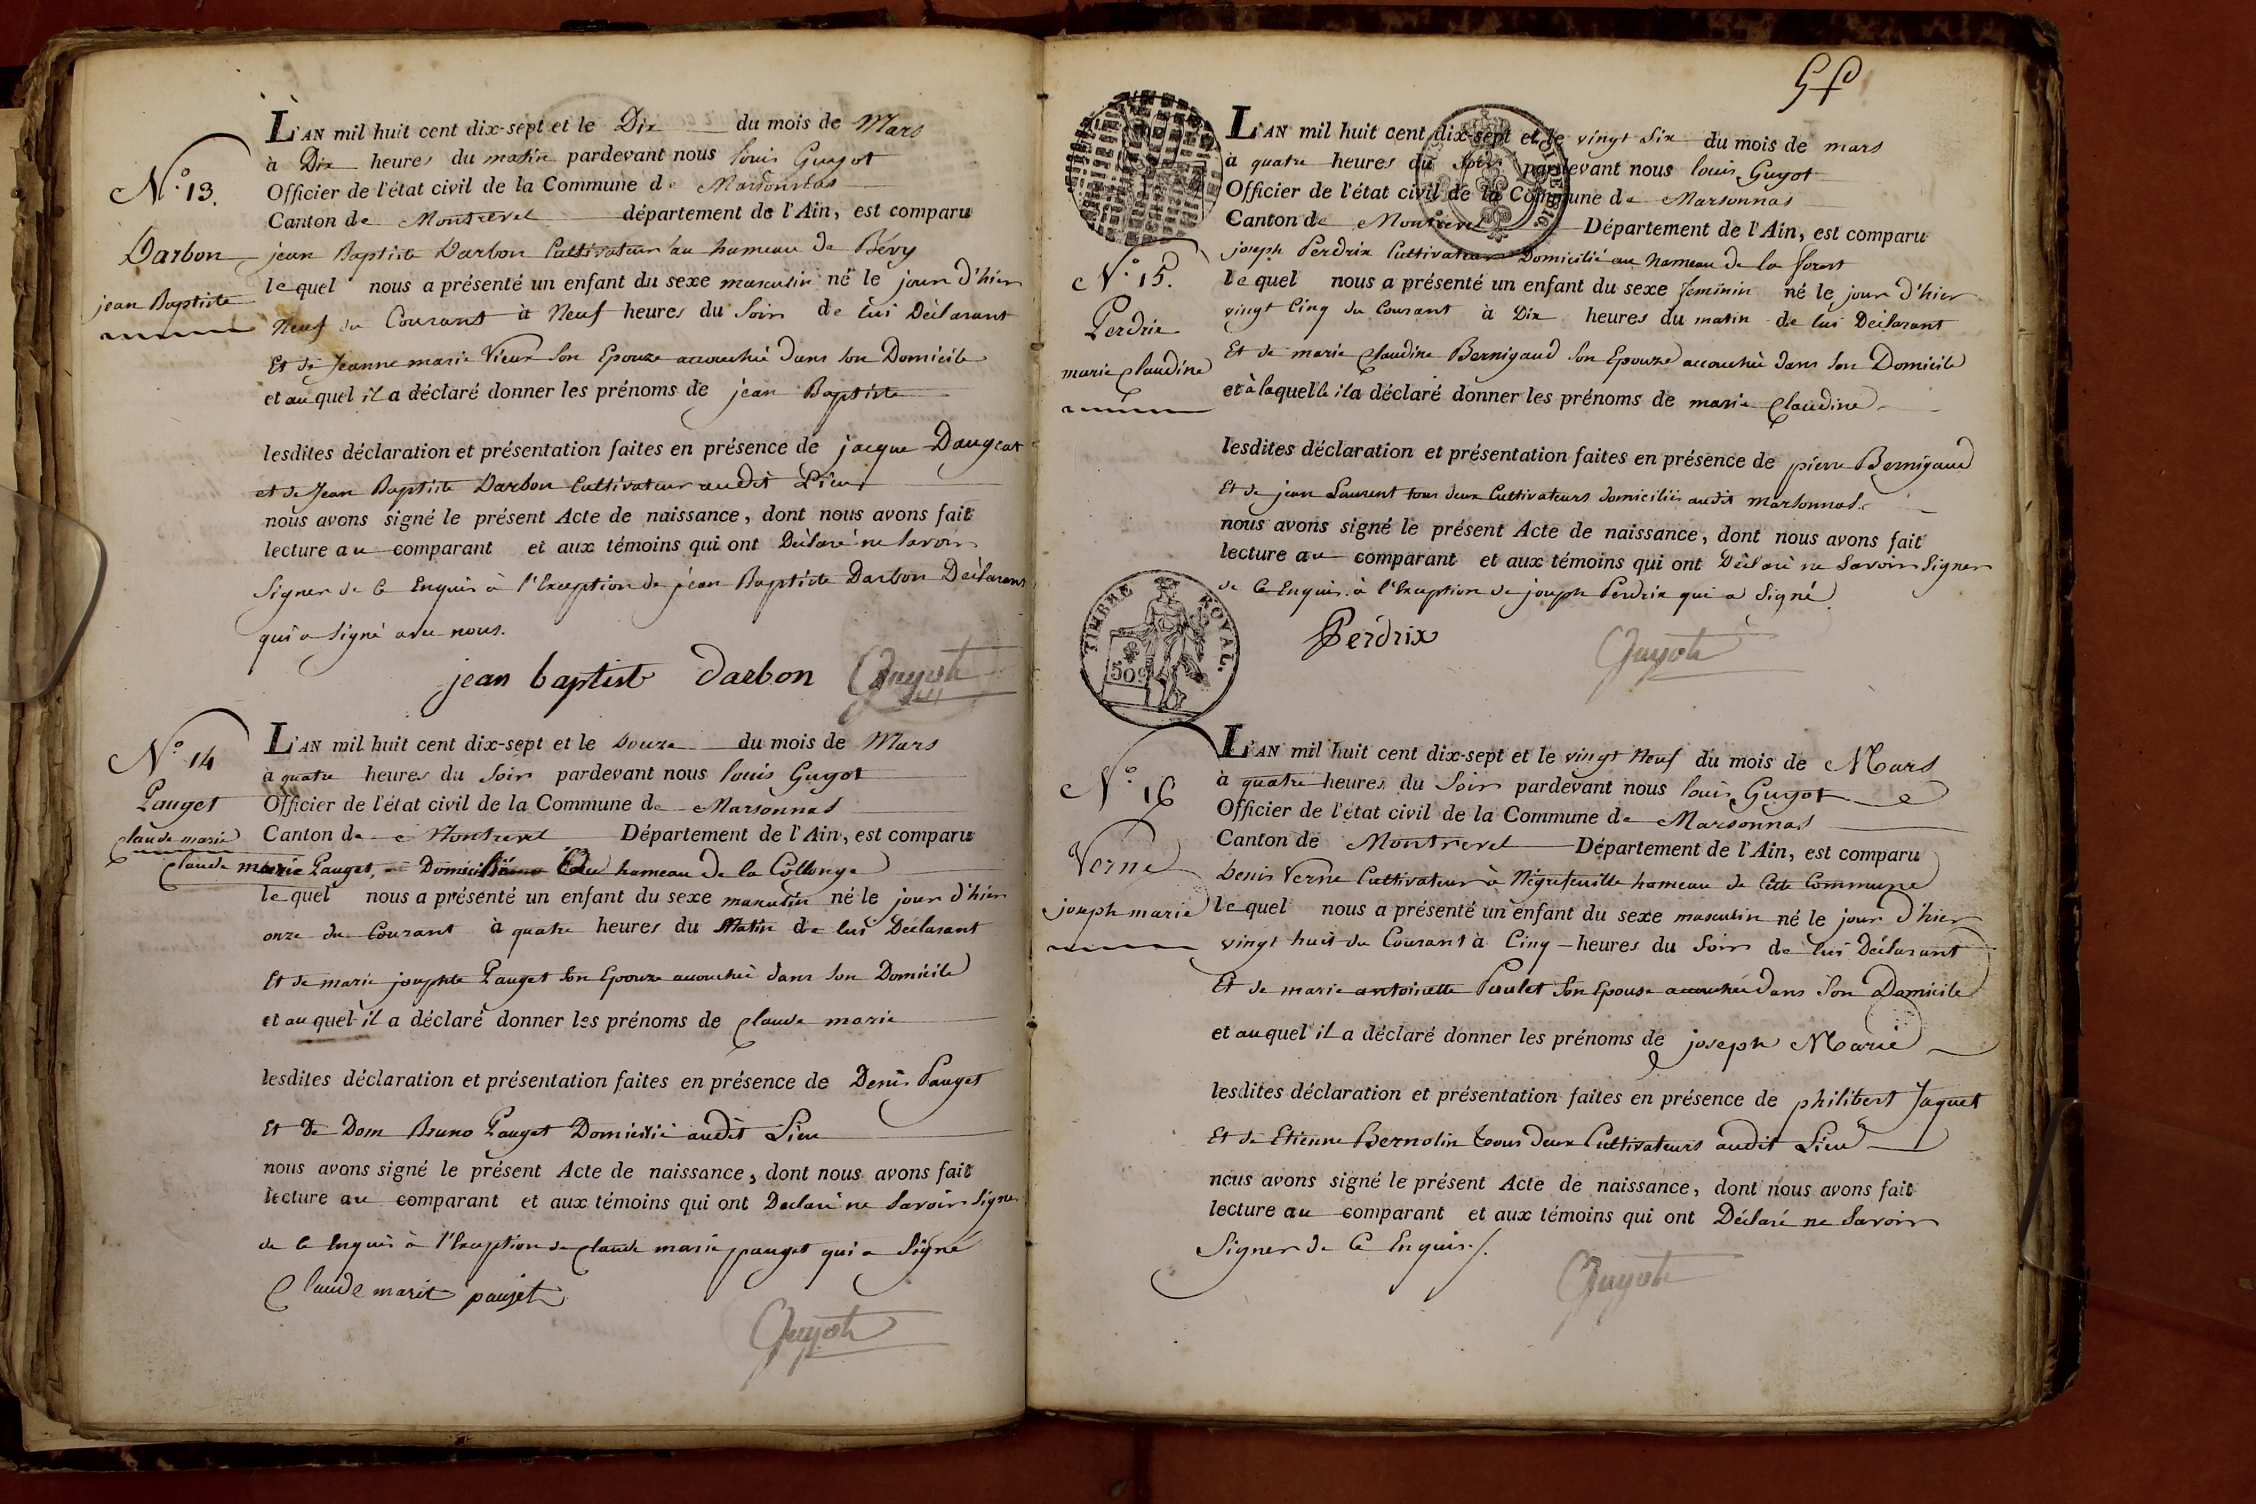 N.° 13.
Darbon
jean Baptiste
L'AN mil huit cent dix-sept et le Dix du mois de Mars
à Dix heures du matin pardevant nous louis Guyot
Officier de l'état civil de la Commune de Marsonnas
Canton de Montrevel département de l'Ain, est comparu
jean Baptiste Darbon Cultivateur au hameau de Bévy
lequel nous a présenté un enfant du sexe masculin né le jour d'hier
Neuf du Courant à Neuf heures du Soir de lui Déclarant
Et de Jeanne marie Vieux Son Epouze accouchée dans son Domicile
et auquel il a déclaré donner les prénoms de jean Baptiste
lesdites déclaration et présentation faites en présence de jacque
et de Jean Baptiste Darbon Cultivateur audit Lieu
nous avons signé le présent Acte de naissance, dont nous avons fait
lecture au comparant et aux témoins qui ont Déclaré ne Savoir
Signer de Ce Enquis à l'Exception de jean Baptiste Darbon Déclarant
qui a Signé avec nous.
jean baptiste darbon Guyot
N.° 14
Pauget
Claude marie
L'AN mil huit cent dix-sept et le Douze du mois de Mars
à quatre heures du Soir pardevant nous louis Guyot
Officier de l'état civil de la Commune de Marsonnas
Canton de Montrevel Département de l'Ain, est comparu
Claude marie Pauget, hameau de la Collonge
lequel nous a présenté un enfant du sexe masculin né le jour d'hier
onze du Courant à quatre heures du Matin de lui Déclarant
Et de marie josephte Pauget Son Epouze accouchée dans Son Domicile
et auquel il a déclaré donner les prénoms de Claude marie
lesdites déclaration et présentation faites en présence de Denis Pauget
Et De Dom Bruno Pauget Domicilié audit Lieu
nous avons signé le présent Acte de naissance, dont nous avons fait
lecture au comparant et aux témoins qui ont Declaré ne Savoir Signer
de Ce Enquis à l'Exception de Claude marie pauget qui a Signé
Claude marie paujet
Guyot
5
N.° 15.
Perdrix
marie Claudine
L'AN mil huit cent dix-sept et le vingt Six du mois de mars
à quatre heures du Soir pardevant nous louis Guyot
Officier de l'état civil de la Commune de Marsonnas
Canton de Montrevel Département de l'Ain, est comparu
joseph Perdrix Cultivateur Domicilié au hameau de la forest
lequel nous a présenté un enfant du sexe feminin né le jour d'hier
vingt Cinq du Courant à Dix heures du matin de lui Déclarant
Et de marie Claudine Bernigaud Son Epouze accouchée dans Son Domicile
et à laquelle il a déclaré donner les prénoms de marie Claudine
lesdites déclaration et présentation faites en présence de pierre Bernigaud
Et de jean Laurent tous deux Cultivateurs domiciliés audit marsonnas.
nous avons signé le présent Acte de naissance, dont nous avons fait
lecture au comparant et aux témoins qui ont Déclaré ne Savoir Signer
de Ce Enquis à l'Exception de joseph Perdrix qui a Signé
Perdrix Guyot
TIMBRE ROYAL.
50
N.° 16
Verne
joseph marie
L'AN mil huit cent dix-sept et le vingt Neuf du mois de Mars
à quatre heures du Soir pardevant nous louis Guyot
Officier de l'état civil de la Commune de Marsonnas
Canton de Montrevel Département de l'Ain, est comparu
Denis Verne Cultivateur à Négrefeuille hameau de Cette Commune
lequel nous a présenté un enfant du sexe masculin né le jour d'hier
vingt huit du Courant à Cinq heures du Soir de lui Déclarant
Et de marie antoinette Poulet Son Epouse accouchée dans Son Domicile
et auquel il a déclaré donner les prénoms de joseph Marie
lesdites déclaration et présentation faites en présence de philibert Jaquet
Et de Etienne Bernolin tous deux Cultivateurs audit Lieu
nous avons signé le présent Acte de naissance, dont nous avons fait
lecture au comparant et aux témoins qui ont Déclaré ne Savoir
Signer de Ce Enquis./.
Guyot